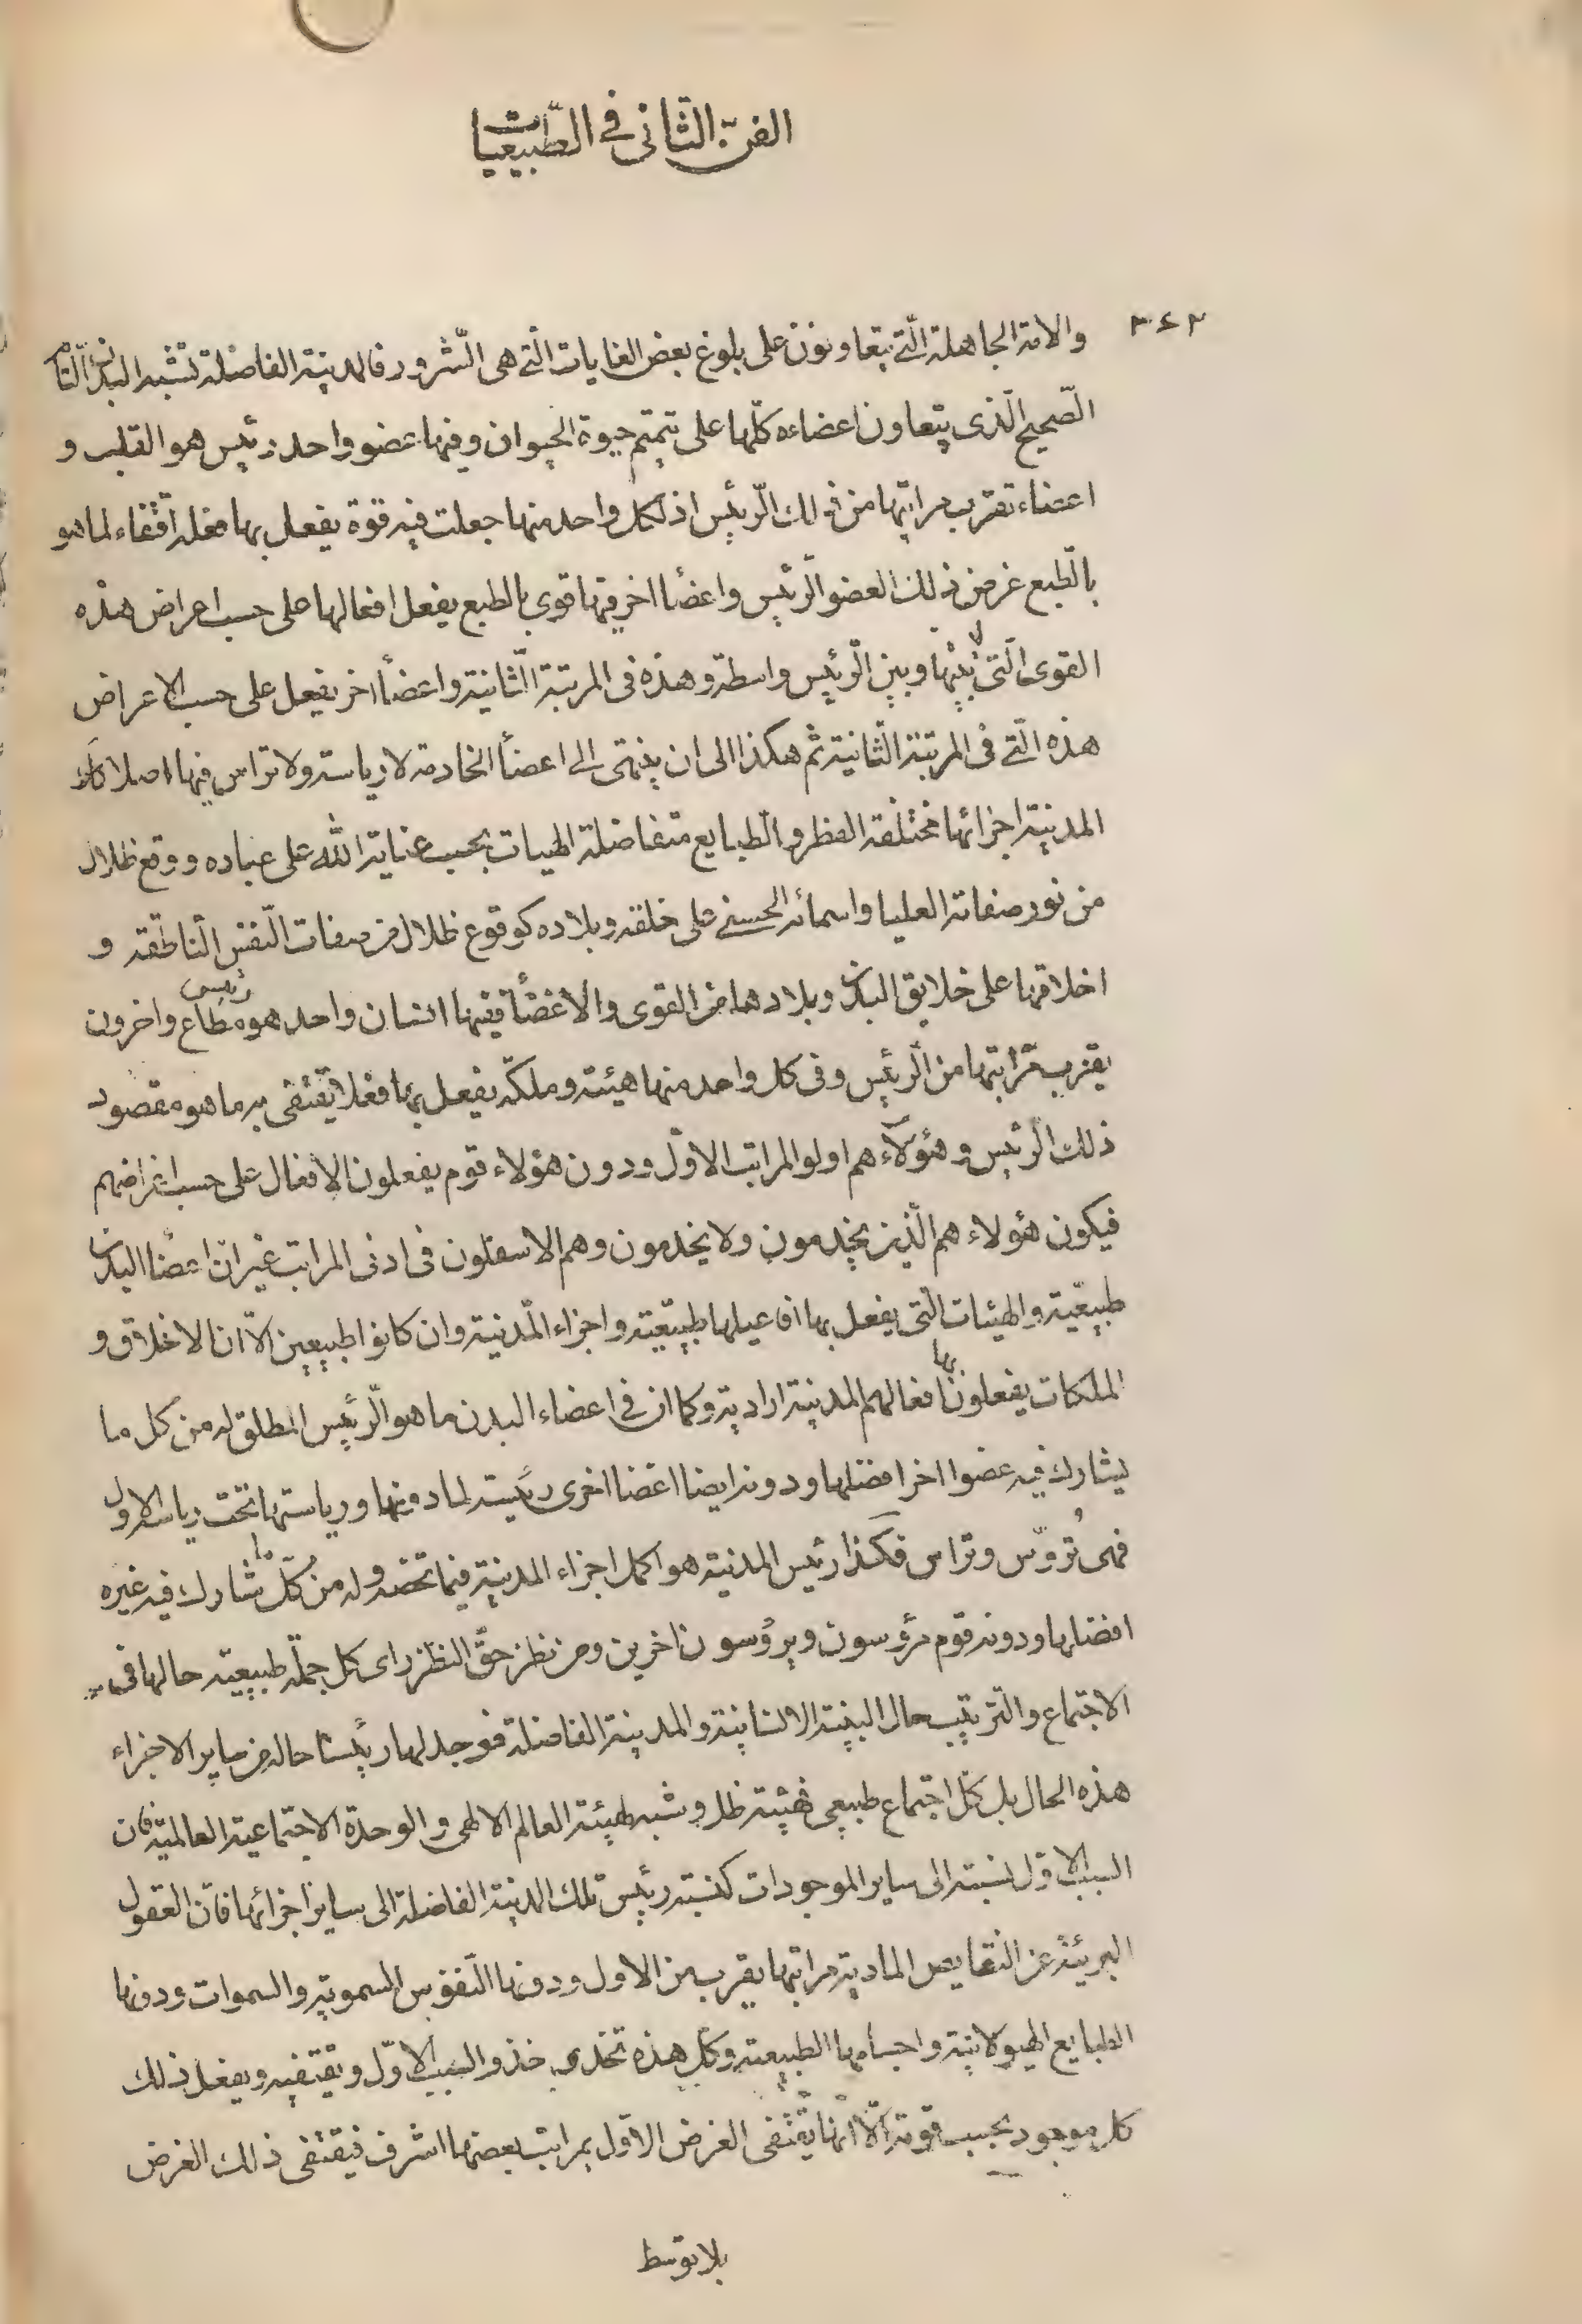 الفنّ الثّانى فى الطّبيعيات
٣٤٢
والامة الجاهلة الّتى يتعاونون على بلوغ بعض الغايات الّتى هى الشّرور فالمدينة الفاضلة تشبه البدن التّام
الصّحيح الّذى يتعاون اعضاءه كلّها على تتميم حيوة الحيوان وفيها عضو واحد رئيس هو القلب و
اعضاء تقرب مراتبها من ذلك الرّئيس اذ لكل واحد منها جعلت فيه قوة يفعل بها فعله اقتفاء لما هو
بالطّبع غرض ذلك العضو الرّئيس واعضأ اخر فيها قوى بالطبع يفعل افعالها على حسب اعراض هذه
القوى الّتى لا بينها وبين الرّئيس واسطة وهذه فى المرتبة الثّانية واعضأ اخر يفعل على حسب الاعراض
هذه الّتى فى المرتبة الثّانية ثم هكذا الى ان ينتهى الى اعضأ الخادمة لا رياسة ولا تراس فيها اصلا كذلك
المدينة اجزائها مختلفة الفطر والطبايع متفاضلة الهيات بحسب عناية الله على عباده ووقع ظلال
من نور صفاته العليا واسمائه الحسنى على خلقه وبلاده كوقوع ظلال من صفات النّفس النّاطقة و
اخلاقها على خلايق البدن وبلادها من القوى والاعضأ ففيها انسان واحد هو رئيس مطاع واخرون
يقرب مراتبها من الرّئيس وفى كل واحد منها هيئة وملكة يفعل بها فعلا يقتفى به ما هو مقصود
ذلك الرّئيس وهؤلاء هم اولو المراتب الاوّل ودون هؤلاء قوم يفعلون الافعال على حسب اغراضهم
فيكون هؤلاء هم الّذين يخدمون ولا يخدمون وهم الاسفلون فى ادنى المراتب غير انّ اعضأ البدن
طبيعيّة والهيئات الّتى يفعل بها افاعيلها طبيعيّة واجزاء المدنية وان كانوا طبيعين الّا ان الاخلاق و
الملكات يفعلون بها افعالهم المدينة ارادية وكما ان فى اعضاء البدن ما هو الرّئيس المطلق له من كل ما
يشارك فيه عضوا اخر افضلها ودونه ايضا اعضا اخرى رئيسة لما دونها ورياستها تحت رياسة الاول
فهى تُروّس وتراس فكذا رئيس المدنية هو اكمل اجزاء المدينة فيما تخصه وله من كلّ ما شارك فيه غيره
افضلها ودونه قوم مرؤسون ويروُسون اخرين ومن نظر حقّ النظر راى كل جملة طبيعية حالها فى
الاجتماع والتّرتيب حال البنية الانسانية والمدينة الفاضلة فوجد لها رئيسا حاله من ساير الاجزاء
هذه الحال بل كلّ اجتماع طبيعى فهيئته ظل وشبه لهيئة العالم الالهى والوحدة الاجتماعية العالميّة فان
السبب الاوّل نسبته الى ساير الموجودات كنسبة رئيس تلك المدنية الفاضلة الى ساير اجزائها فانّ العقول
البريئة عن النّقايص المادية مراتبها يقرب من الاول ودونها النّفوس السموية والسموات ودونها
الطبايع الهيولانية واجسامها الطبيعية وكل هذه تحذى حذو السبب الاوّل ويقتفيه ويفعل ذلك
كل موجود بحسب قوته الّا انّها يقتفى الغرض الاوّل بمراتب بعضها اشرف فيقتفى ذلك الغرض
بلا توسّط